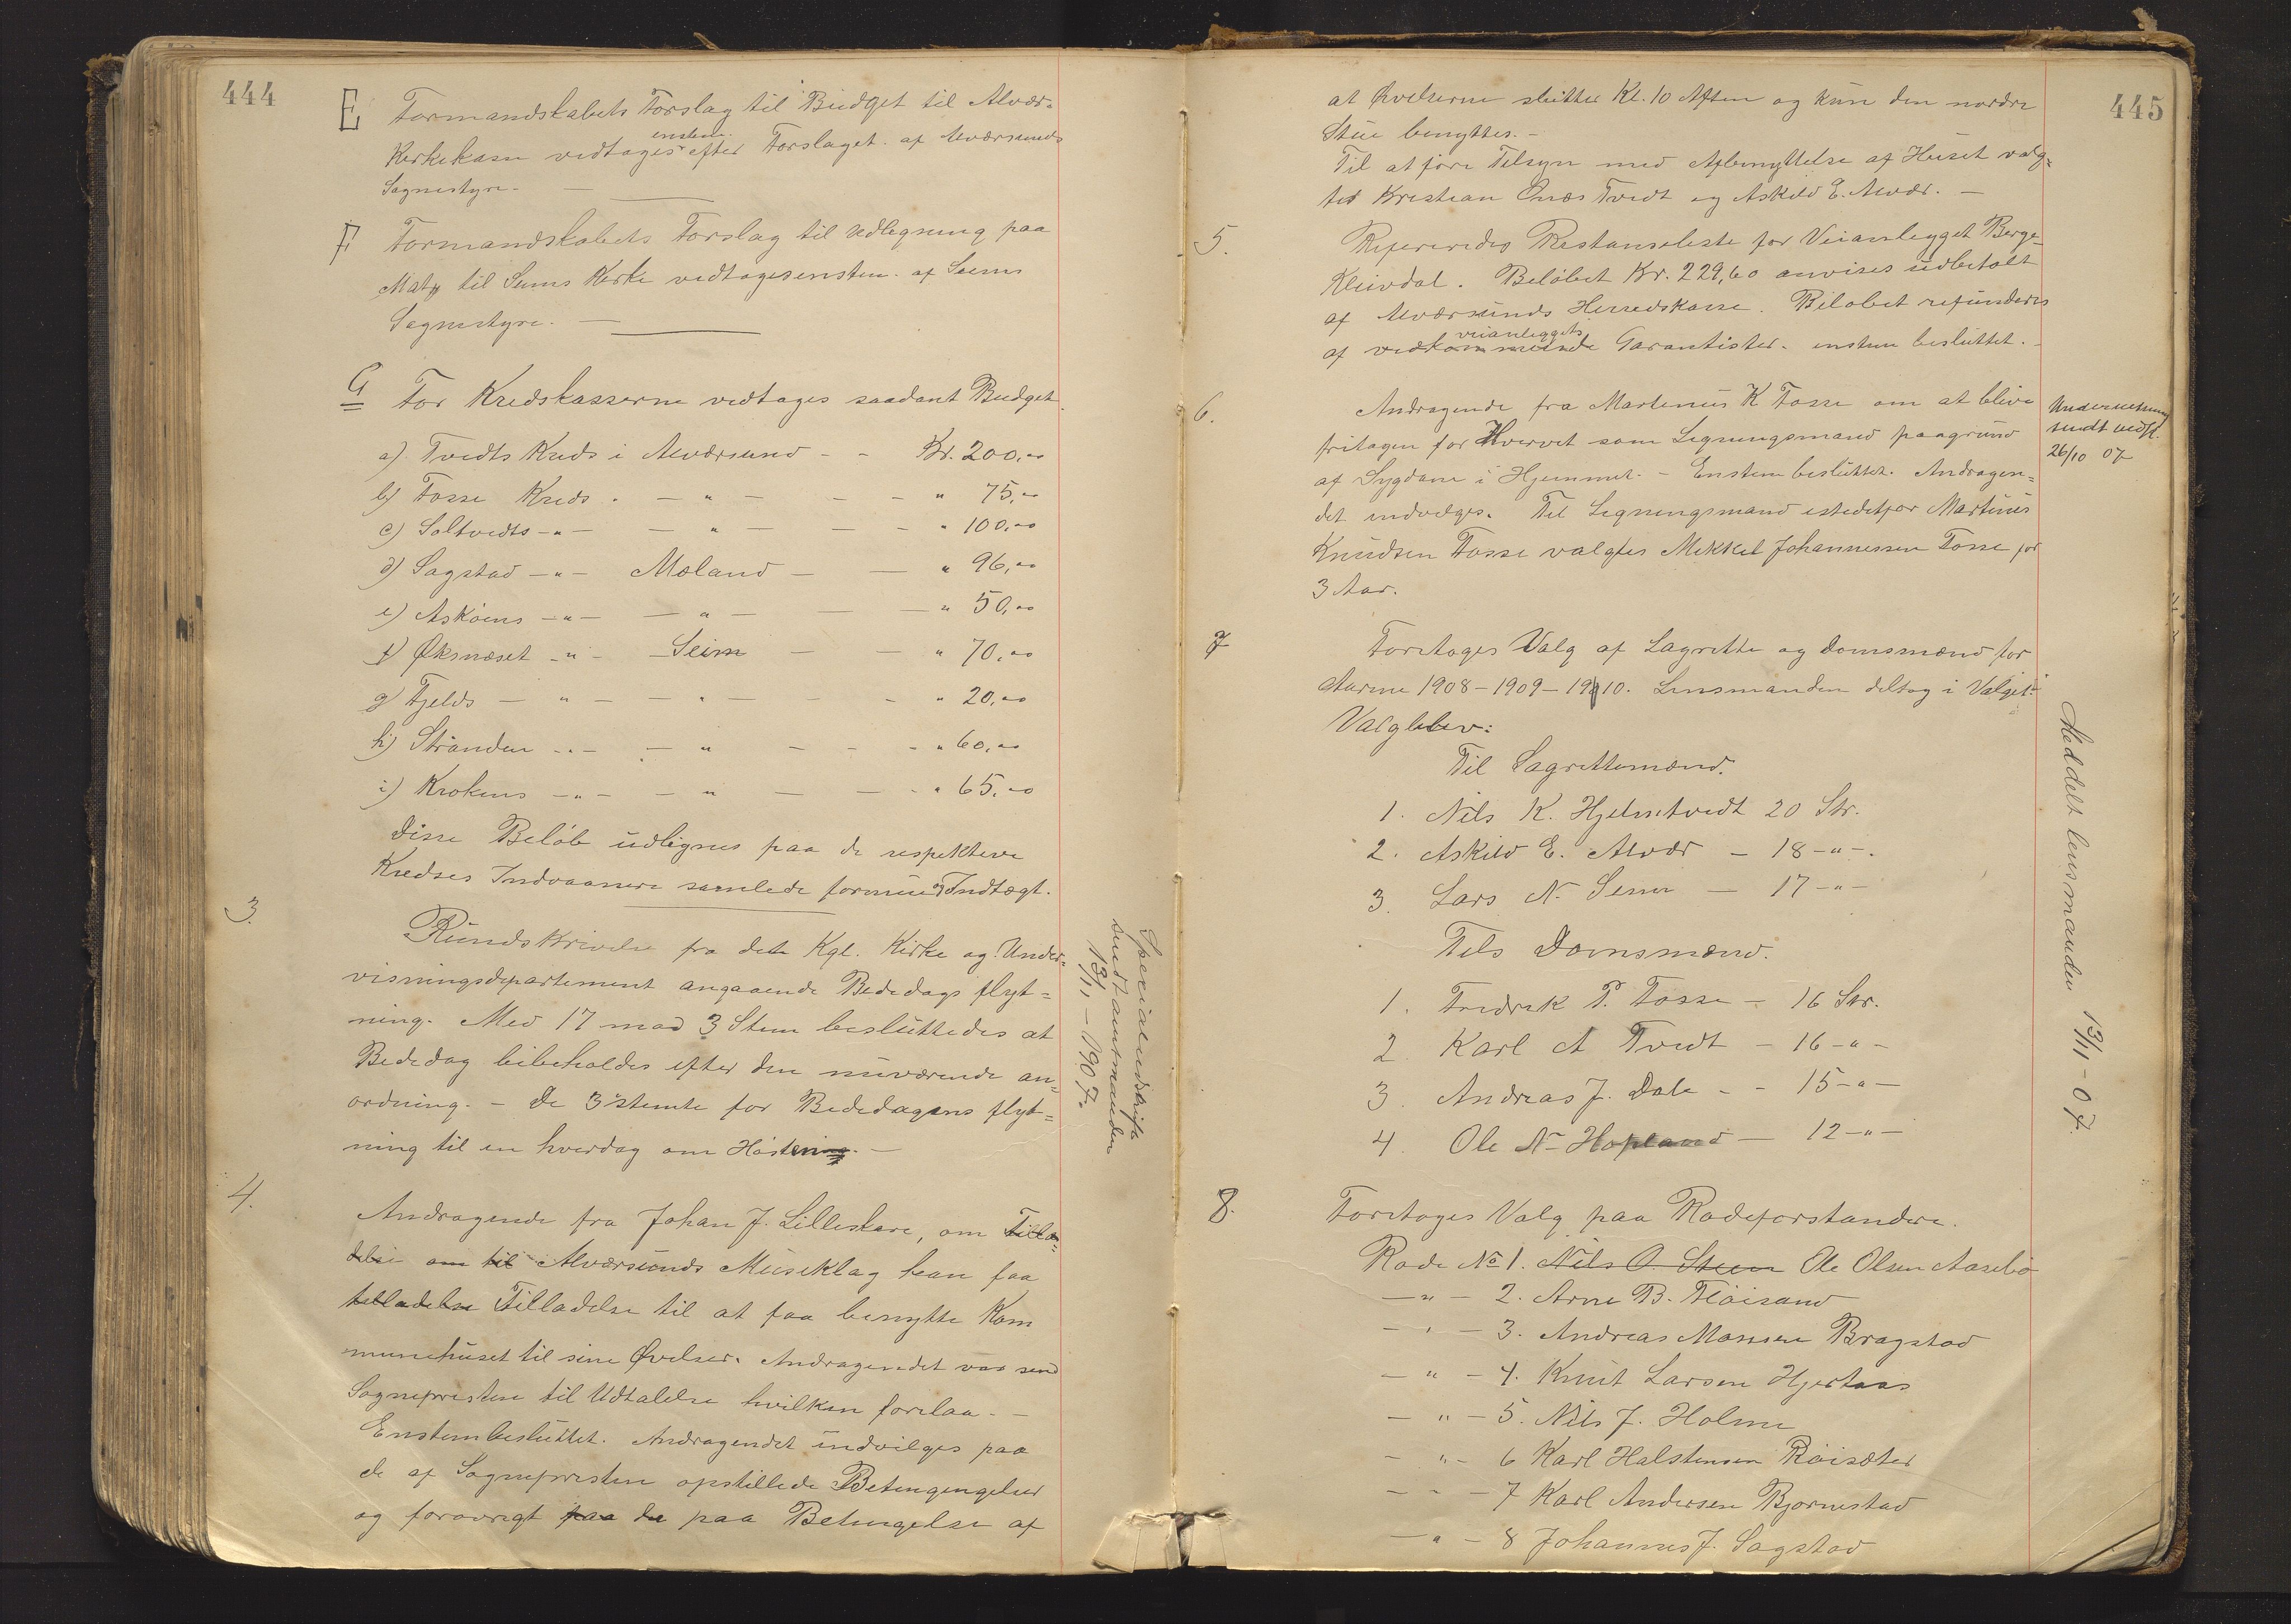 444
E Formandskabets Forslag til Budget til Alvær-
Kirkekasse vedtages enstem. efter Forslaget. af Alværsunds
Sognestyre. —
F Formandskabets Forslag til Udlegning paa
Mat. til Seims Kirke vedtages enstem. af Seims
Sognestyre. —
G For Kredskasserne vedtages saadant Budget.
a) Tvedts Kreds i Alværsund - - Kr. 200,00
b) Fosse Kreds. — " — - - " 75,00
c) Soltvedts -"- — " — - - " 100,00
d) Sagstad -"- Mæland — — " 96,00
e) Askøens -"- — " — — — " 50,00
f) Øksnæset -"- — Seim — — " 70,00
g) Fjelds — " — — " — - - " 20,00
h) Stranden -"- — " — - - " 60,00
i) Krokens -"- — " — — - " 65,00
Disse Beløb udlignes paa de respektive
Kredses Indvaanere samlede formue og Indtægt.
3. Rundskrivelse fra det Kgl. Kirke og Under-
visningsdepartement angaaende Bededags flyt=
ning. Med 17 mod 3 Stem besluttedes at
Bededag bibeholdes efter den nuværende an=
ordning. - De 3 stemte for Bededagens flyt=
ning til en hverdag om Høsten. —
Specialudskrift
sendt amtmanden
13/11 - 1907.
4. Andragende fra Johan J. Lilleskare, om Tilla=
delse om til Alværsunds Musiklag kan faa
tilladelse Tilladelse til at faa benytte Kom
munehuset til sine Øvelser. Andragendet var send
Sognepresten til Udtalelse hvilken forelaa. —
Enstem besluttet. Andragendet indvilges paa
de af Sognepresten opstillede Betengengelser
og forøvrigt paa de paa Betingelse af
445
at Øvelserne slutter Kl. 10 Aften og kun den nordre
Stue benyttes. -
Til at føre Tilsyn med Afbenyttelse af Huset valg=
tes Kristian Onæs Tvedt og Askild E. Alvær. —
5. Refereredes Restanseliste for Veianlegget Berge-
Kleivdal. Beløbet Kr. 229,60 anvises udbetalt
af Alværsunds Herredskasse. Beløbet refunderes
af vedkommende veianleggets Garantister. enstem besluttet.
6. Andragende fra Martinus K Fosse om at blive
fritagen for Hvervet som Ligningsmand paagrund
af Sygdom i Hjemmet. - Enstem besluttet. Andragen=
det indvilges. Til Ligningsmand istedetfor Martinus
Knudsen Fosse valgtes Mikkel Johannessen Fosse for
3 Aar.
Underretning
sendt vedk.
26/10 07
7 Foretoges Valg af Lagrette og Domsmænd for
Aarene 1908 - 1909 - 1910. Lensmanden deltog i Valget.
Valgt blev:
Til Lagrettemænd.
1. Nils K. Hjelmtvedt 20 Str.
2. Askild E. Alvær - 18 -"-.
3. Lars N. Seim — 17 -"-
Tils Domsmænd.
1. Fredrik P. Fosse - 16 Str.
2. Karl A Tvedt - 16 -"-
3. Andreas J. Dale - - 15 -"-
4. Ole N. Hopland — 12 -"-
Meddelt lensmanden 13/11 - 07.
8. Foretoges Valg paa Rodeforstandere.
Rode No 1. Nils O. Steen Ole Olsen Aasebø
— " — 2. Arne B. Fløisand
— " — 3. Andreas Monsen Bragstad
— " — 4. Knut Larsen Hjertaas
— " — 5. Nils J. Holme
— " — 6 Karl Halstensen Røisæter
— " — 7 Karl Andersen Bjørnestad
— " — 8 Johannes J. Sagstad